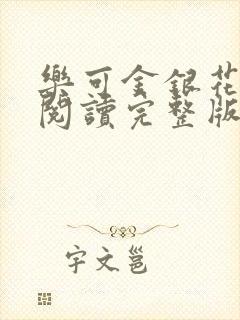 樂可金銀花
閱讀完整版
宇文邕